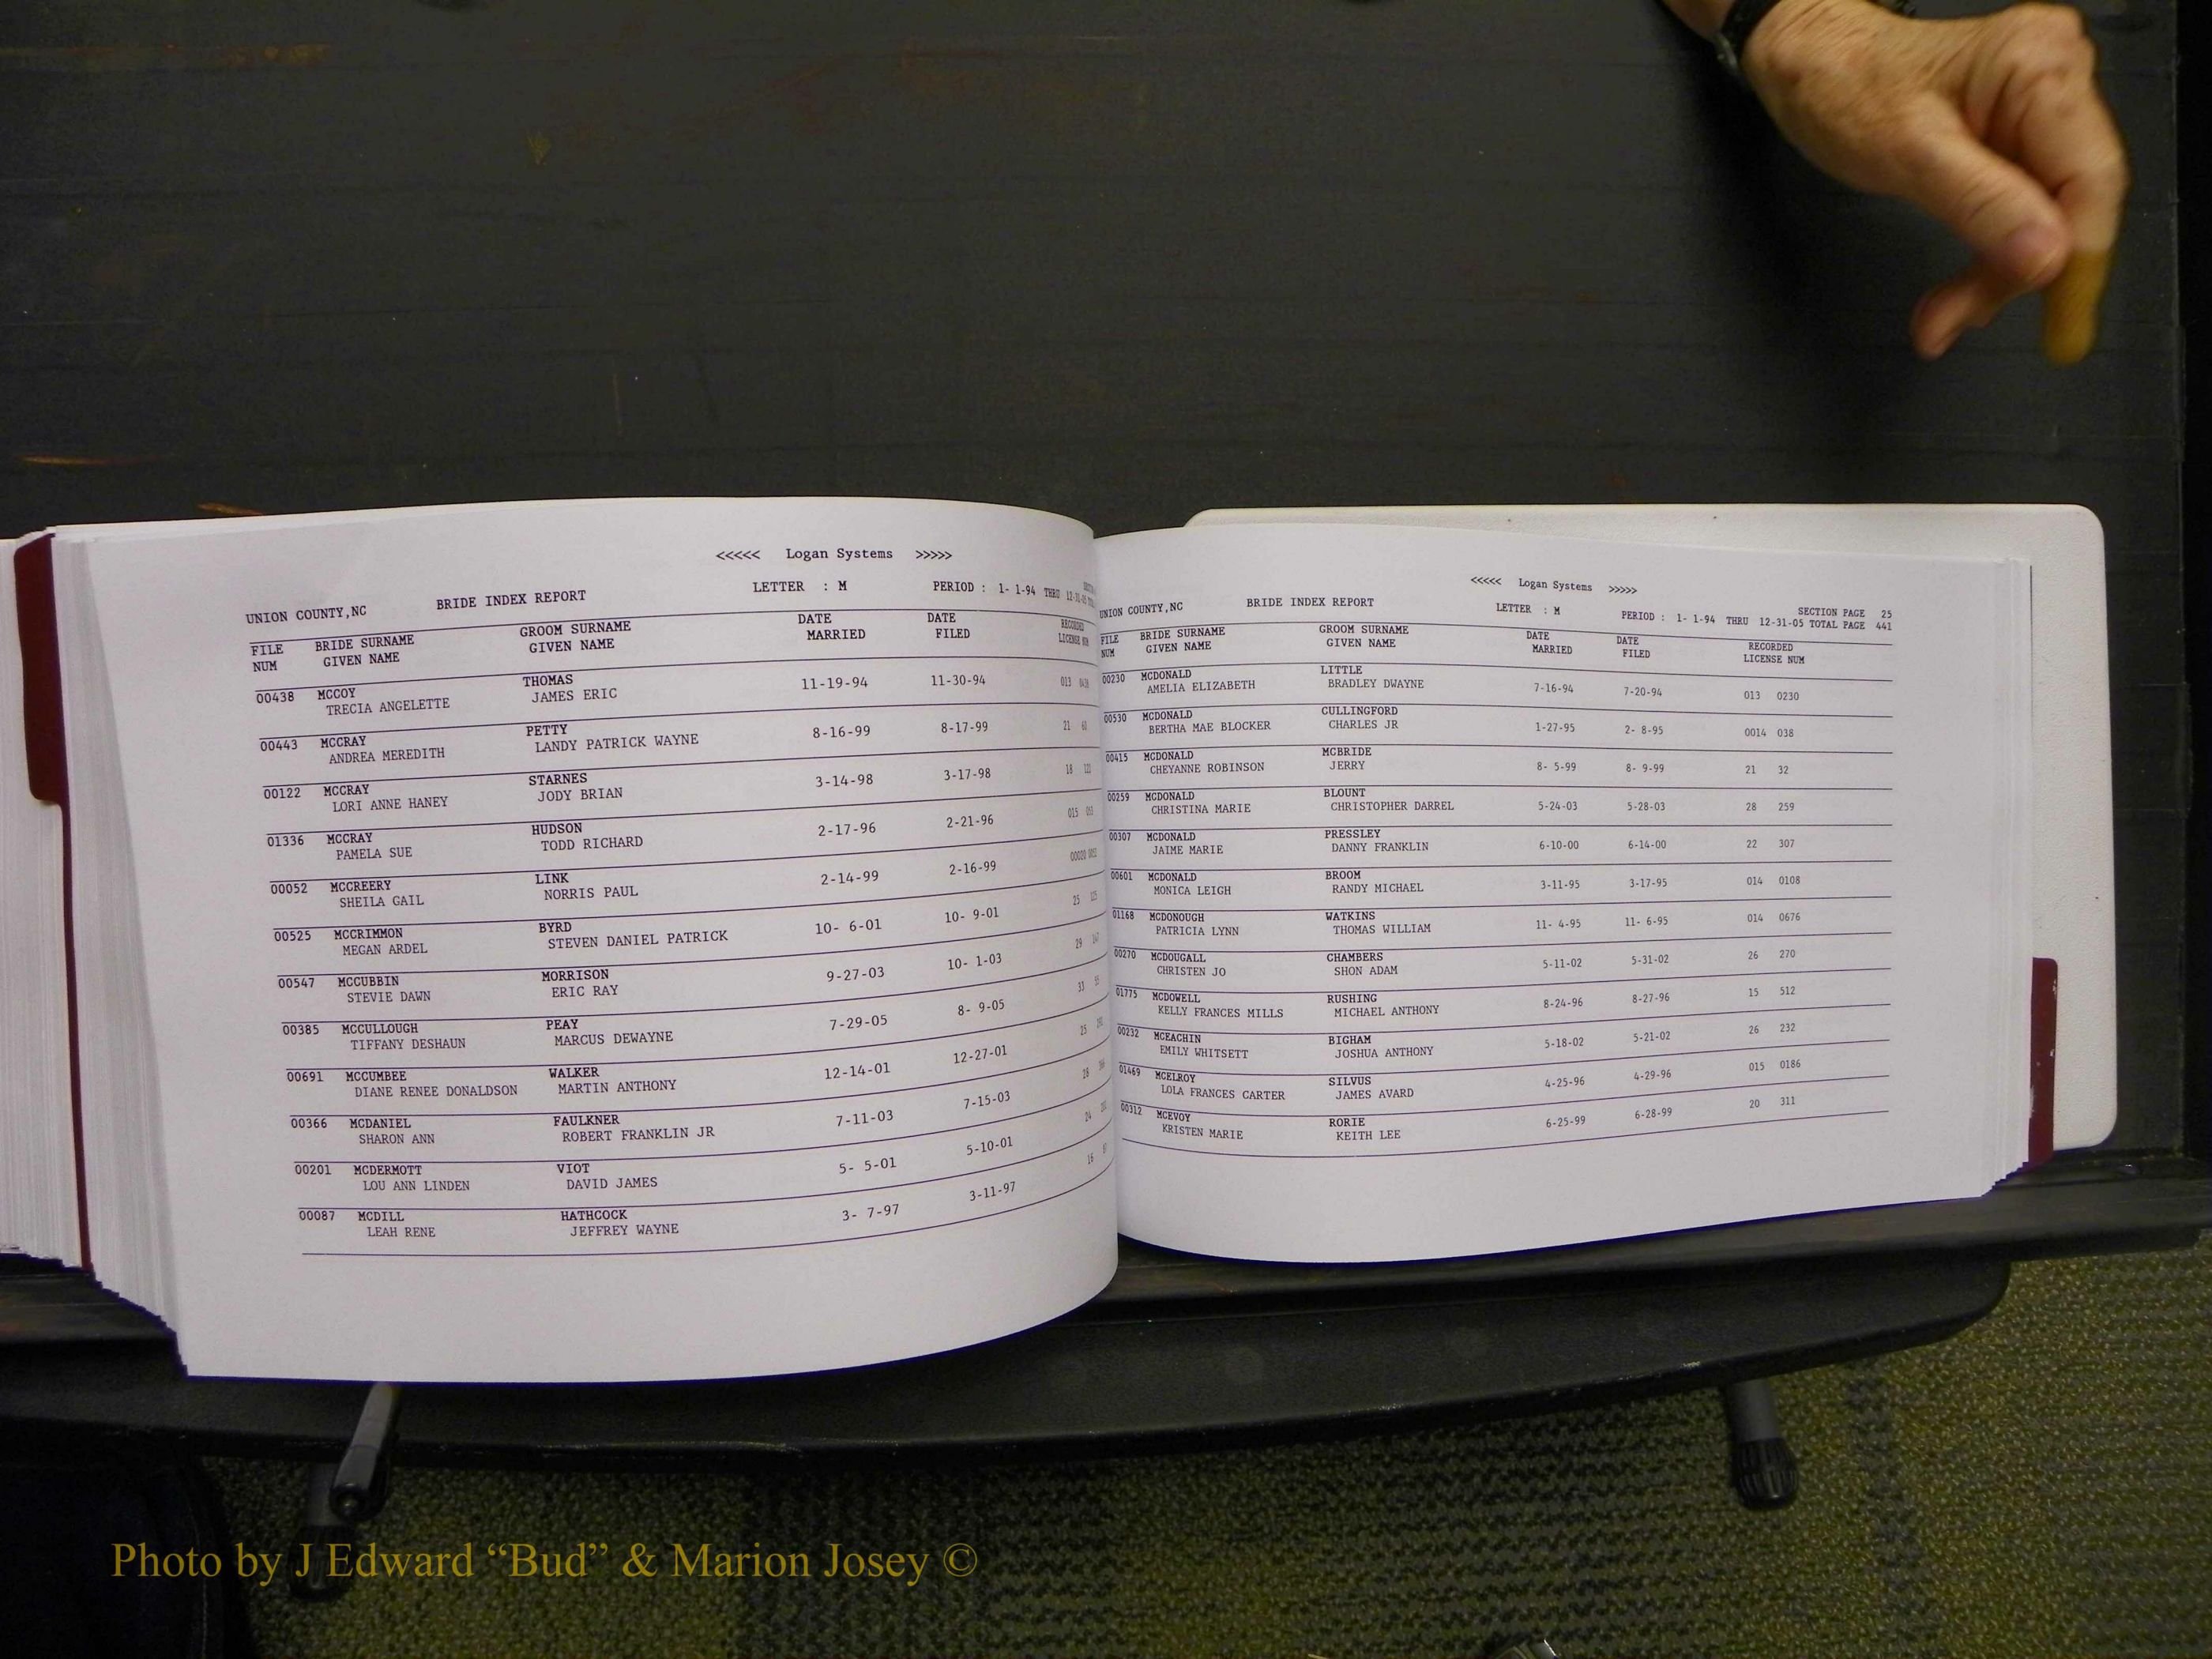 <<<<< Logan Systems >>>>>
UNION COUNTY,NC BRIDE INDEX REPORT LETTER : M PERIOD : 1- 1-94 THRU
FILE NUM BRIDE SURNAME GIVEN NAME GROOM SURNAME GIVEN NAME DATE MARRIED DATE FILED RECORDED LICENSE NUM
00438 MCCOY THOMAS 11-19-94 11-30-94 013
TRECIA ANGELETTE JAMES ERIC
00443 MCCRAY PETTY 8-16-99 8-17-99 21
ANDREA MEREDITH LANDY PATRICK WAYNE
00122 MCCRAY STARNES 3-14-98 3-17-98 18
LORI ANNE HANEY JODY BRIAN
01336 MCCRAY HUDSON 2-17-96 2-21-96 015
PAMELA SUE TODD RICHARD
00052 MCCREERY LINK 2-14-99 2-16-99
SHEILA GAIL NORRIS PAUL
00525 MCCRIMMON BYRD 10- 6-01 10- 9-01 25
MEGAN ARDEL STEVEN DANIEL PATRICK
00547 MCCUBBIN MORRISON 9-27-03 10- 1-03 29
STEVIE DAWN ERIC RAY
00385 MCCULLOUGH PEAY 7-29-05 8- 9-05 33
TIFFANY DESHAUN MARCUS DEWAYNE
00691 MCCUMBEE WALKER 12-14-01 12-27-01 25
DIANE RENEE DONALDSON MARTIN ANTHONY
00366 MCDANIEL FAULKNER 7-11-03 7-15-03 28
SHARON ANN ROBERT FRANKLIN JR
00201 MCDERMOTT VIOT 5- 5-01 5-10-01 24
LOU ANN LINDEN DAVID JAMES
00087 MCDILL HATHCOCK 3- 7-97 3-11-97 16
LEAH RENE JEFFREY WAYNE
<<<<< Logan Systems >>>>>
SECTION PAGE 25
UNION COUNTY,NC BRIDE INDEX REPORT LETTER : M PERIOD : 1- 1-94 THRU 12-31-05 TOTAL PAGE 441
FILE NUM BRIDE SURNAME GIVEN NAME GROOM SURNAME GIVEN NAME DATE MARRIED DATE FILED RECORDED LICENSE NUM
00230 MCDONALD LITTLE 7-16-94 7-20-94 013 0230
AMELIA ELIZABETH BRADLEY DWAYNE
00530 MCDONALD CULLINGFORD 1-27-95 2- 8-95 0014 038
BERTHA MAE BLOCKER CHARLES JR
00415 MCDONALD MCBRIDE 8- 5-99 8- 9-99 21 32
CHEYANNE ROBINSON JERRY
00259 MCDONALD BLOUNT 5-24-03 5-28-03 28 259
CHRISTINA MARIE CHRISTOPHER DARREL
00307 MCDONALD PRESSLEY 6-10-00 6-14-00 22 307
JAIME MARIE DANNY FRANKLIN
00601 MCDONALD BROOM 3-11-95 3-17-95 014 0108
MONICA LEIGH RANDY MICHAEL
01168 MCDONOUGH WATKINS 11- 4-95 11- 6-95 014 0676
PATRICIA LYNN THOMAS WILLIAM
00270 MCDOUGALL CHAMBERS 5-11-02 5-31-02 26 270
CHRISTEN JO SHON ADAM
01775 MCDOWELL RUSHING 8-24-96 8-27-96 15 512
KELLY FRANCES MILLS MICHAEL ANTHONY
00232 MCEACHIN BIGHAM 5-18-02 5-21-02 26 232
EMILY WHITSETT JOSHUA ANTHONY
01469 MCELROY SILVUS 4-25-96 4-29-96 015 0186
LOLA FRANCES CARTER JAMES AVARD
00312 MCEVOY RORIE 6-25-99 6-28-99 20 311
KRISTEN MARIE KEITH LEE
Photo by J Edward “Bud” & Marion Josey ©